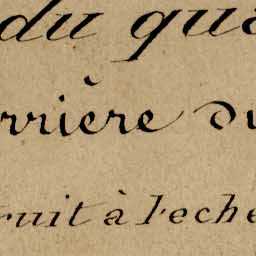 du qua
rrière du
ruit à l'eche